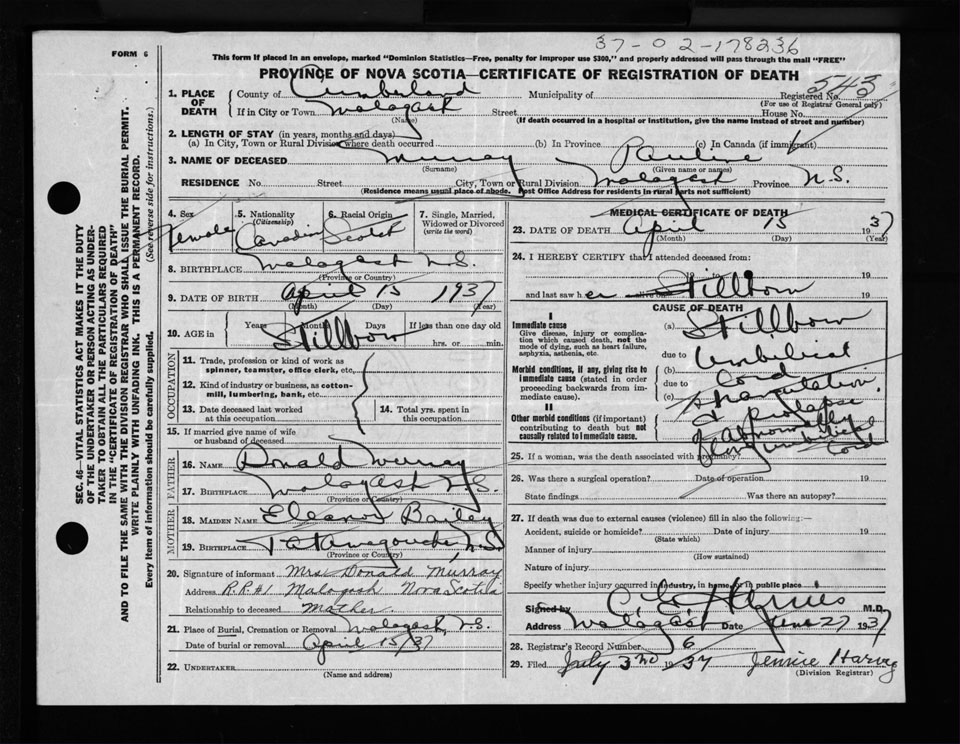 37-02-178236
FORM 6
This form if placed in an envelope, marked "Dominion Statistics—Free, penalty for improper use $300," and properly addressed will pass through the mail "FREE"
PROVINCE OF NOVA SCOTIA—CERTIFICATE OF REGISTRATION OF DEATH
1. PLACE OF DEATH
County of Cumberland Municipality of Registered No. 543
(For use of Registrar General only)
If in City or Town Malagash Street House No.
(Name) (If death occurred in a hospital or institution, give the name instead of street and number)
2. LENGTH OF STAY (in years, months and days)
(a) In City, Town or Rural Division where death occurred (b) In Province (c) In Canada (if immigrant)
3. NAME OF DECEASED Murray Pauline
(Surname) (Given name or names)
RESIDENCE No. Street City, Town or Rural Division Malagash Province N.S.
(Residence means usual place of abode. Post Office Address for residents in rural parts not sufficient)
4. Sex Female
5. Nationality (Citizenship) Canadian
6. Racial Origin Scotch
7. Single, Married, Widowed or Divorced (write the word)
8. BIRTHPLACE Malagash N.S.
(Province or Country)
9. DATE OF BIRTH April 15 1937
(Month) (Day) (Year)
10. AGE in Years Months Days If less than one day old
Stillborn hrs. or min.
OCCUPATION
11. Trade, profession or kind of work as spinner, teamster, office clerk, etc.
12. Kind of industry or business, as cotton-mill, lumbering, bank, etc.
13. Date deceased last worked at this occupation
14. Total yrs. spent in this occupation
15. If married give name of wife or husband of deceased
FATHER
16. NAME Donald Murray
17. BIRTHPLACE Malagash N.S.
(Province or Country)
MOTHER
18. MAIDEN NAME Eleanor Bailey
19. BIRTHPLACE Tatamagouche N.S.
(Province or Country)
20. Signature of informant Mrs Donald Murray
Address R.R.#1 Malagash Nova Scotia
Relationship to deceased Mother.
21. Place of Burial, Cremation or Removal Malagash, N.S.
Date of burial or removal April 15/37
22. UNDERTAKER
(Name and address)
MEDICAL CERTIFICATE OF DEATH
23. DATE OF DEATH April 15 1937
(Month) (Day) (Year)
24. I HEREBY CERTIFY that I attended deceased from:
19 to 19
and last saw her alive on Stillborn 19
CAUSE OF DEATH
I
Immediate cause
Give disease, injury or complication which caused death, not the mode of dying, such as heart failure, asphyxia, asthenia, etc.
(a) Stillborn
due to
Morbid conditions, if any, giving rise to immediate cause (stated in order proceeding backwards from immediate cause).
(b) Umbilical
due to Cord
(c) Strangulation.
II
Other morbid conditions (if important) contributing to death but not causally related to immediate cause.
Prolapse
Abnormally
Long Umbilical
Cord
25. If a woman, was the death associated with pregnancy?
26. Was there a surgical operation? Date of operation 19
State findings Was there an autopsy?
27. If death was due to external causes (violence) fill in also the following:—
Accident, suicide or homicide? Date of injury 19
(State which)
Manner of injury
(How sustained)
Nature of injury
Specify whether injury occurred in industry, in home, or in public place
Signed by M.D.
Address Malagash Date June 27 1937
28. Registrar's Record Number 6
29. Filed July 3rd 1937 Jennie Harvey
(Division Registrar)
SEC. 46—VITAL STATISTICS ACT MAKES IT THE DUTY
OF THE UNDERTAKER OR PERSON ACTING AS UNDER-
TAKER TO OBTAIN ALL THE PARTICULARS REQUIRED
IN THE "CERTIFICATE OF REGISTRATION OF DEATH"
AND TO FILE THE SAME WITH THE DIVISION REGISTRAR WHO SHALL ISSUE THE BURIAL PERMIT.
WRITE PLAINLY WITH UNFADING INK. THIS IS A PERMANENT RECORD.
Every item of information should be carefully supplied. (See reverse side for instructions.)